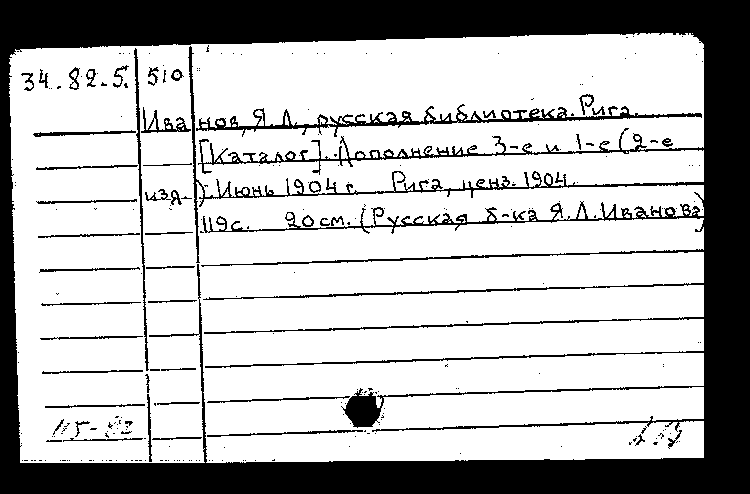 34.82.5. 510
Иванов, Я. Л., русская библиотека. Рига.
[Каталог]. Дополнение 3-е и 1-е (2-е
изд.). Июнь 1904 г. Рига, ценз. 1904.
119с. 20см. (Русская б-ка Я.Л.Иванова)